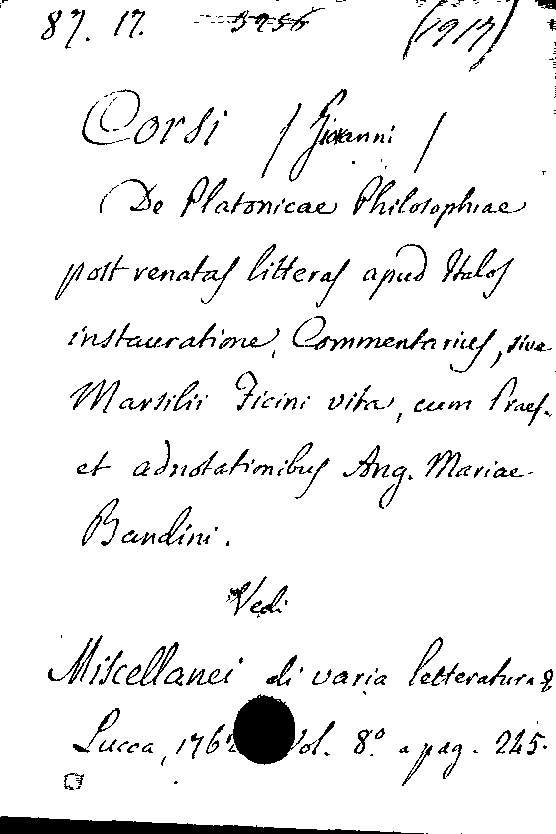 87. 17. 5956 (1917)
Corsi / Giovanni /
De Platonicae Philosophiae
post renatas litteras apud Italos
instauratione, Commentarius, sive
Marsilii Ficini vita, cum Praef.
et adnotationibus Ang. Mariae
Bandini.
Vedi
Miscellanei di varia letteratura
Lucca, 176 Vol. 8.º a pag. 245.